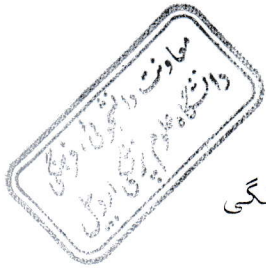 معاونت دانشجویی و فرهنگی
دانشگاه علوم پزشکی اردبیل
ـگی